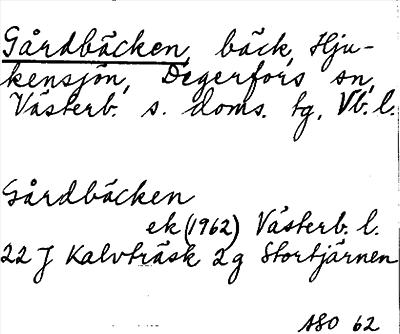 Gårdbäcken, bäck, Hju-
kensjön, Degerfors sn,
Västerb. s. doms. tg, Vb. l.
Gårdbäcken
ek (1962) Västerb. l.
22 J Kalvträsk 2g Stortjärnen
ASO 62